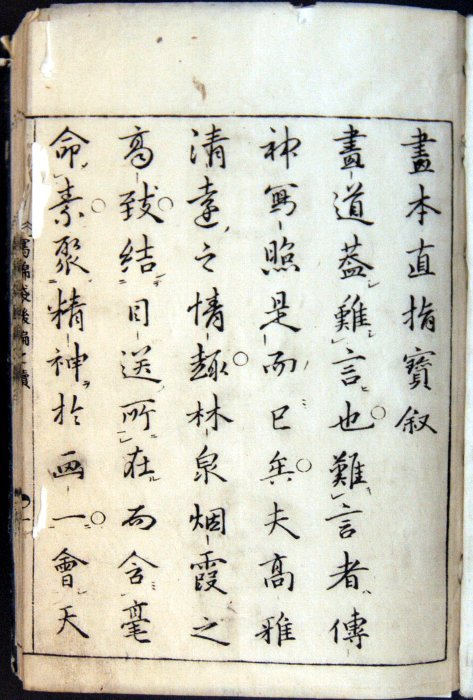 畫本直指寶叙
畫道葢難言也難言者傳
神寫照是而已矣夫高雅
清遠之情趣林泉烟霞之
高致結目送所在而含毫
命素聚精神於画一會天